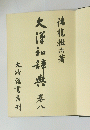 諸橋轍次著
大漢和辭典 卷八
大修館書店刊